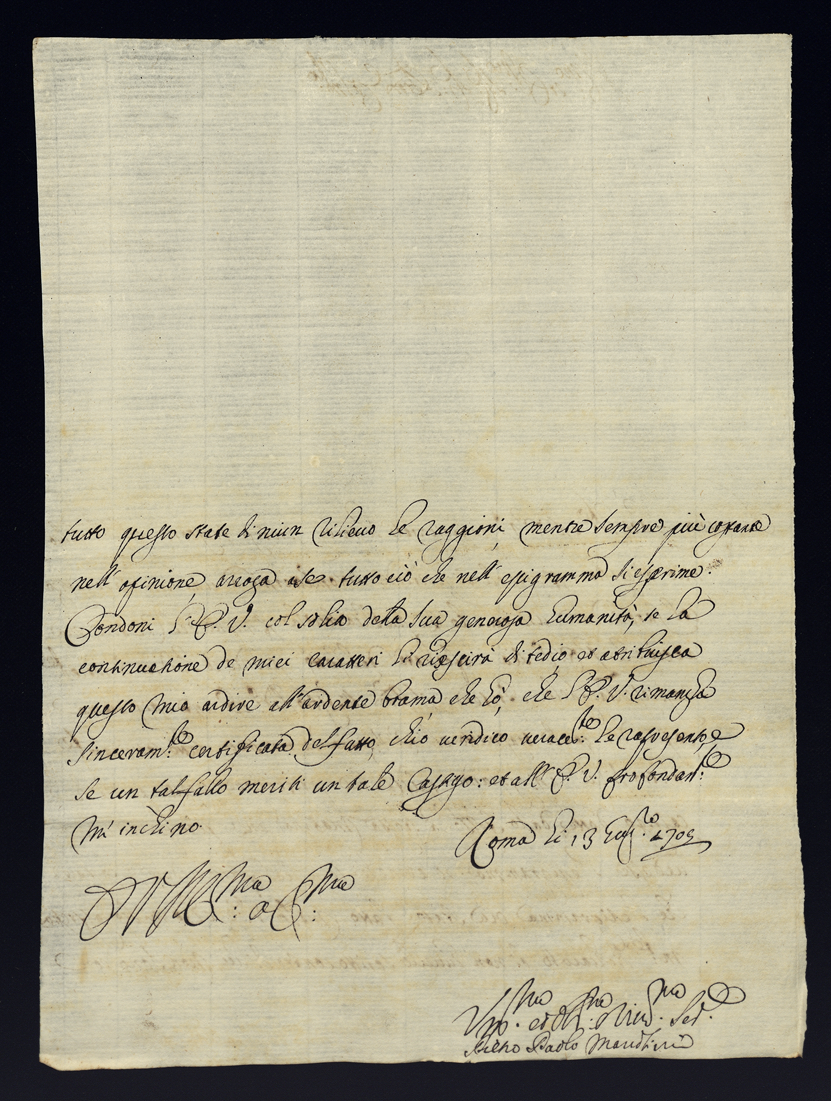 tutto questo state di niun rilievo le raggioni, mentre sempre più costante
nell'opinione aroga a se tutto ciò che nell'epigramma si esprime.
Condoni V.E. col solito della sua generosa humanità, se la
continuatione de miei caratteri le riescirà di tedio et attribuisca
questo mio ardire all'ardente brama che hò, che V.E. rimanga
sinceram.te certificata del fatto, ch'io veridico verace.te le rapresento, e
se un tal fallo meriti un tale castigo: et all'E.V. profondam.te
m'inchino.
Roma li 13
D V E
Vm.o et Ser.
Pietro Paolo